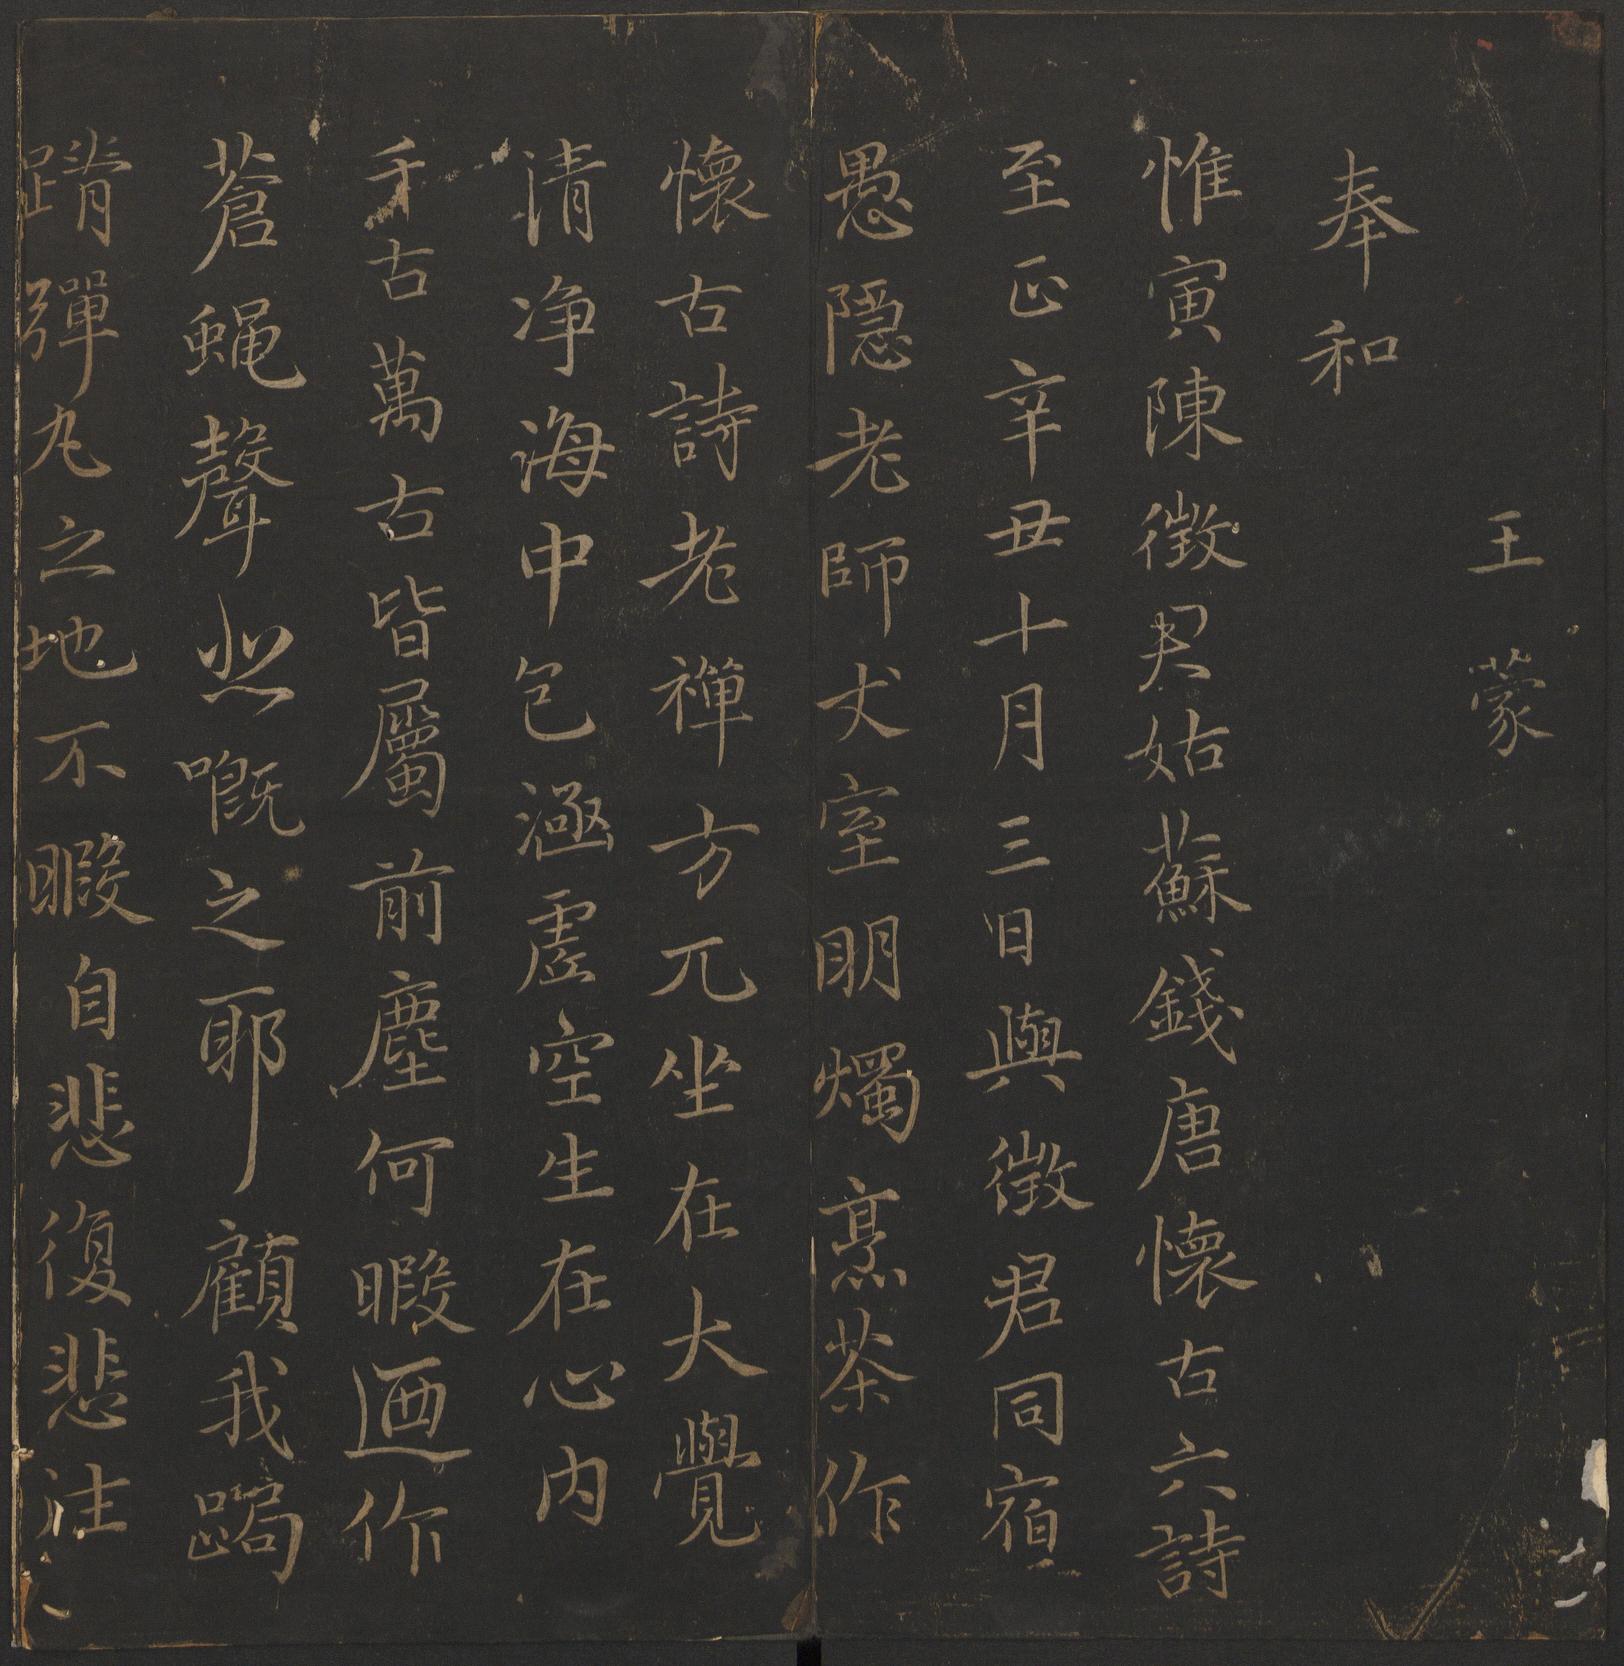 王蒙
奉和
惟寅陳徵君姑蘇錢唐懷古六詩
至正辛丑十月三日與徵君同宿
愚隱老師丈室明燭烹茶作
懷古詩老禪方兀坐在大覺
清净海中包涵虛空生在心内
千古萬古皆屬前塵何暇迺作
蒼蝇聲以嘅之耶顧我跼
蹐彈丸之地不暇自悲復悲往